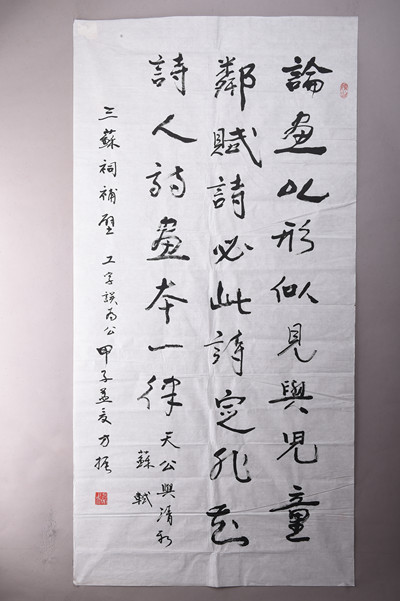 論畫以形似見與兒童
鄰賦詩必此詩定非知
詩人詩畫本一律
天公與清新
蘇軾
三蘇祠補壁 工字誤為公 甲子孟夏 方振